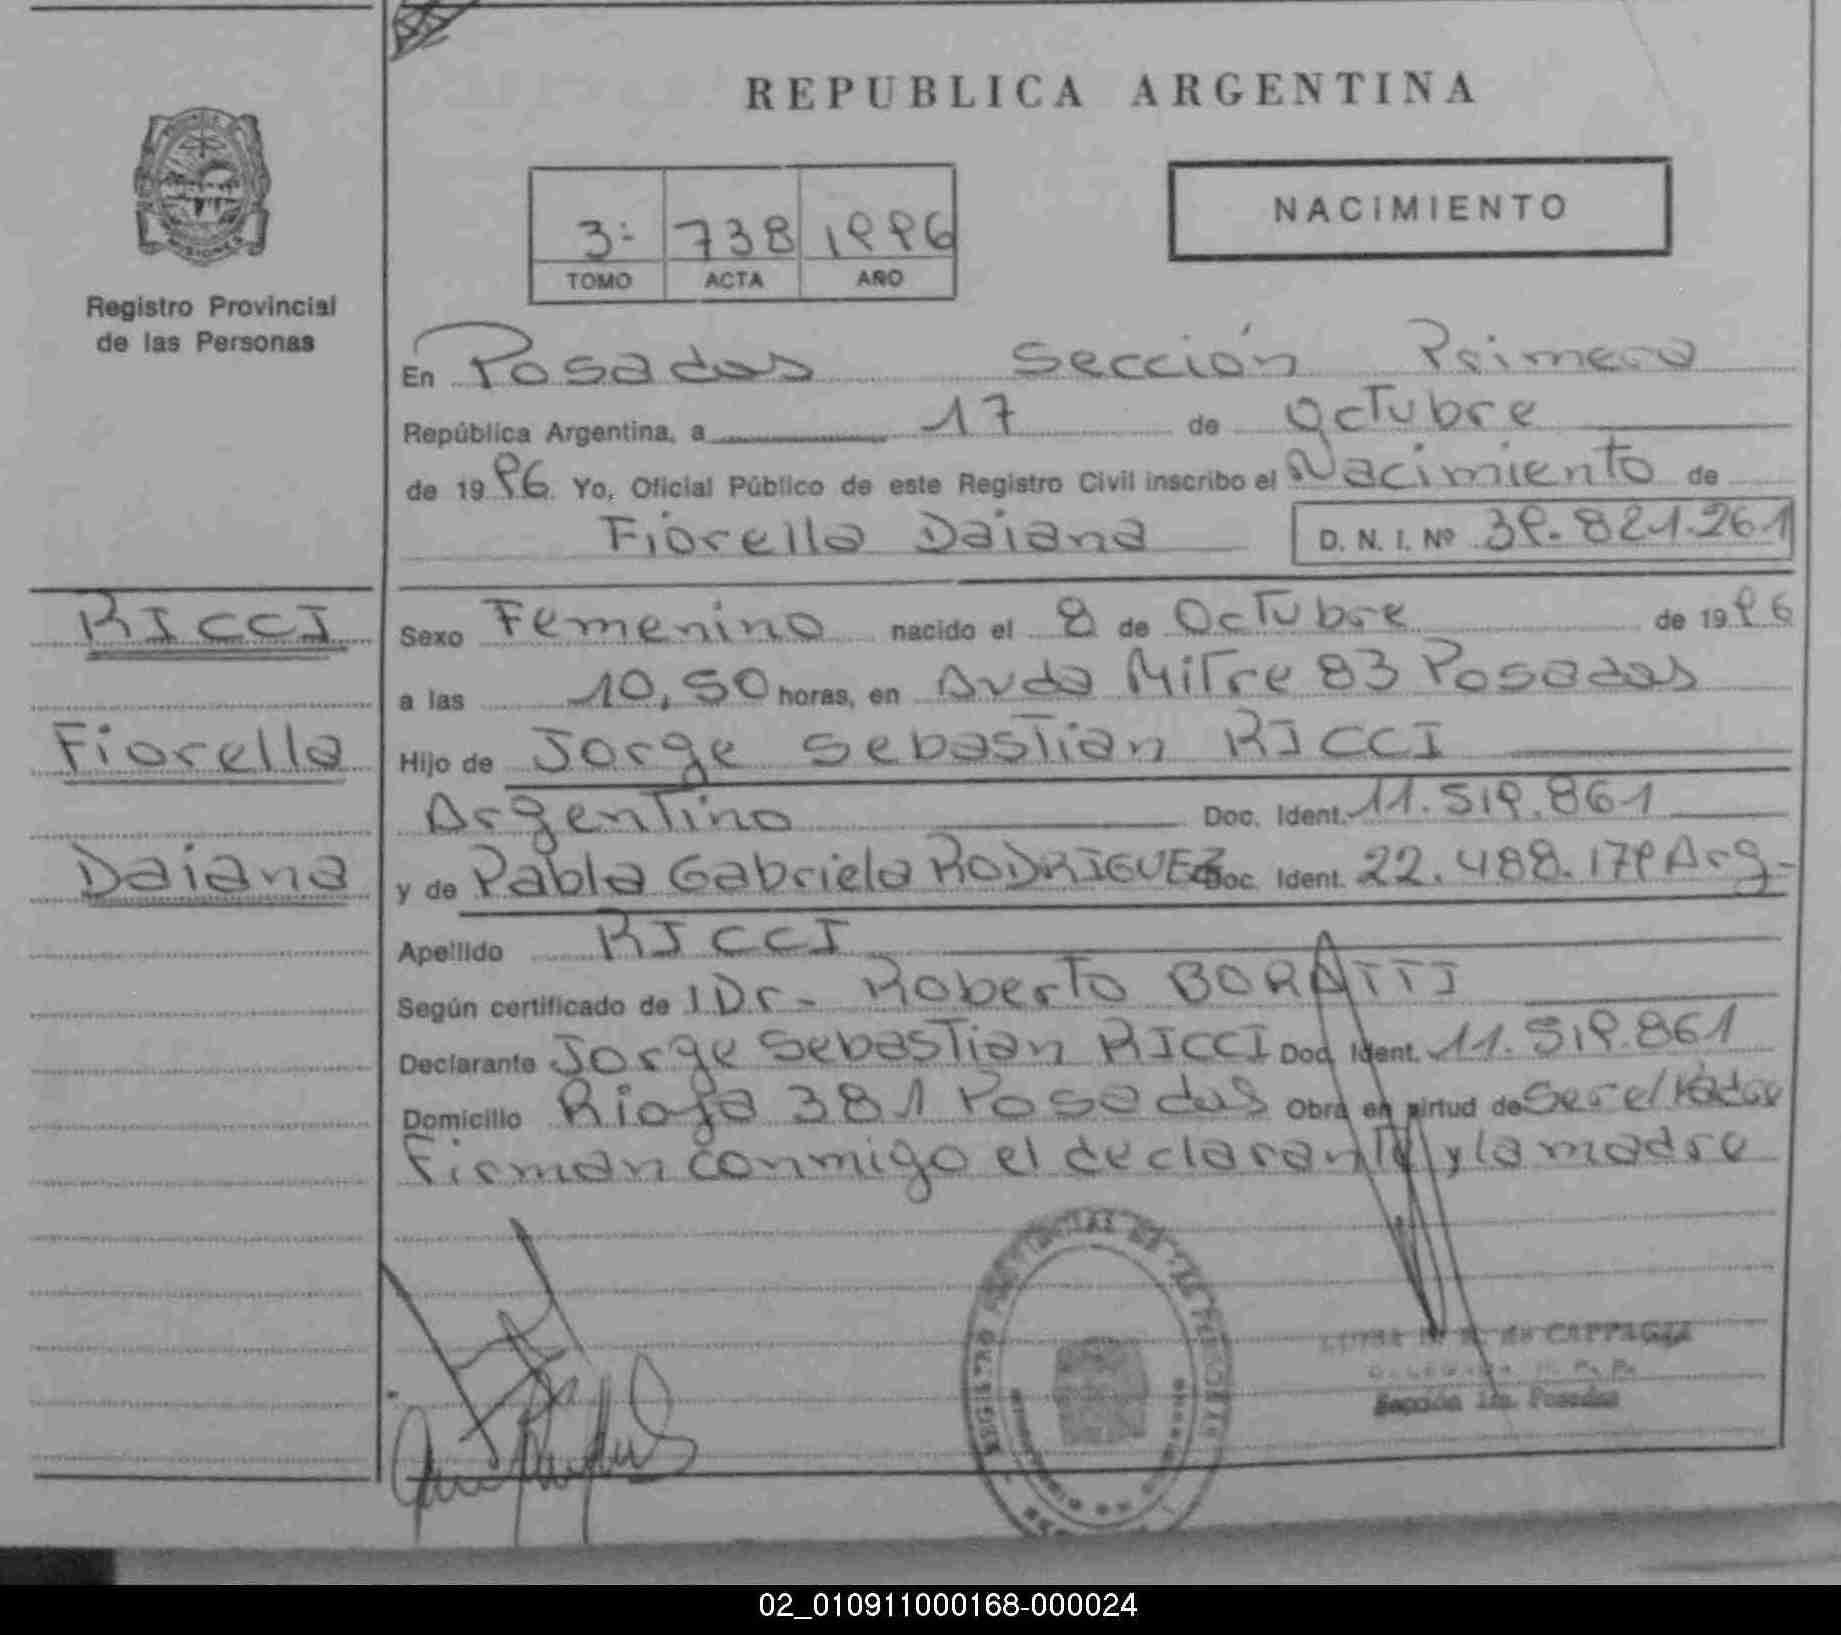 REPUBLICA ARGENTINA
NACIMIENTO
3= 738 1996
TOMO ACTA AÑO
Registro Provincial
de las Personas
MISIONES
En Posadas Sección Primera
República Argentina, a 17 de Octubre
de 1996 Yo, Oficial Público de este Registro Civil inscribo el Nacimiento de
Fiorella Daiana D. N. I. Nº 39.821.261
RICCI
Fiorella
Daiana
Sexo Femenino nacido el 8 de Octubre de 1996
a las 10,50 horas, en Avda Mitre 83 Posadas
Hijo de Jorge Sebastian RICCI
Argentino Doc. Ident. 11.519.861
y de Pabla Gabriela RODRIGUEZ Doc. Ident. 22.488.179 Arg-
Apellido RICCI
Según certificado de Dr- Roberto BORATTI
Declarante Jorge Sebastian RICCI Doc. Ident. 11.519.861
Domicilio Rioja 381 Posadas Obra en virtud de Ser el Padre
Firman conmigo el declarante y la madre
de CAPPAGLI
Sección 1ra. Posadas
02_010911000168-000024